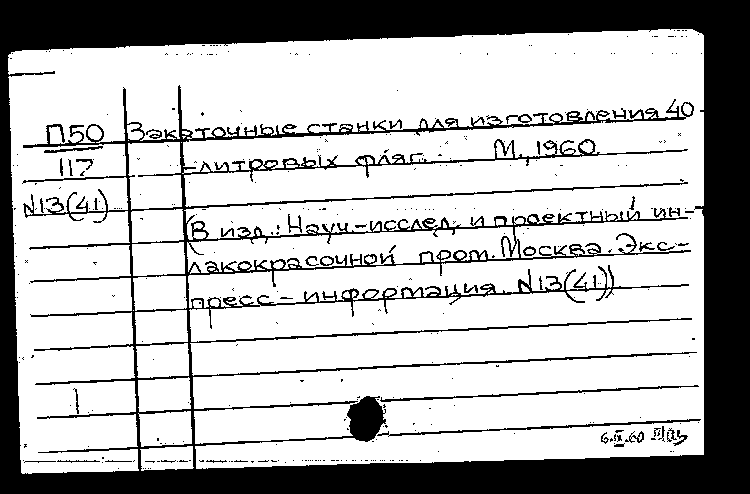 П50 Закаточные станки для изготовления 40-
117 -литровых фляг. М., 1960.
N13(41)
(В изд.: Науч-исслед. и проектный ин-т
лакокрасочной пром. Москва. Экс-
пресс-информация. N13(41))
6.IX.60